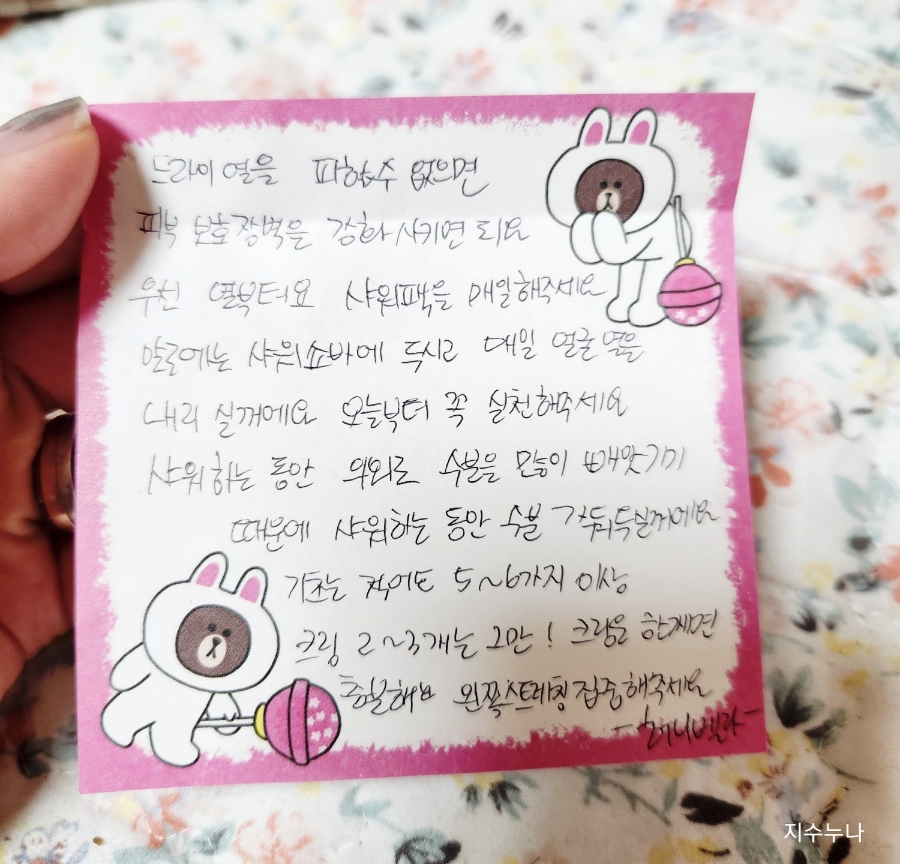 드라이 열을 피할수 없으면
피부 보호장벽을 강화 시키면 되요
우선 열부터요 샤워팩을 매일해주세요
앞으로에는 샤워쇼바에 두시고 매일 얼굴열을
내리 실꺼에요 오늘부터 꼭 실천해주세요
샤워하는 동안 의외로 수분을 많이 빼앗기기
때문에 샤워하는 동안 수분 가둬두실꺼에요
기초는 적어도 5~6가지 이상
크림 2~3개는 그만! 크림은 한개면
충분해요 왼쪽스트레칭 집중해주세요
벨라-
지수누나